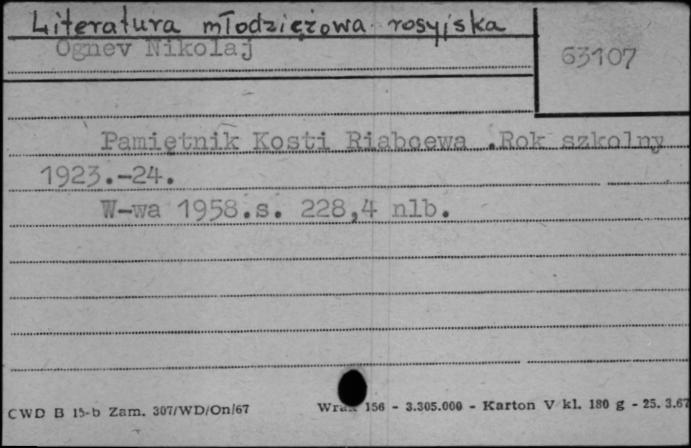 Literatura młodzieżowa rosyjska
Ognev Nikolaj
63107
Pamiętnik Kosti Riabcewa .Rok szkolny
1923.-24.
W-wa 1958.s. 228,4 nlb.
CWD B 15-b Zam. 307/WD/On/67 156 - 3.305.000 - Karton V kl. 180 g - 25. 3.67